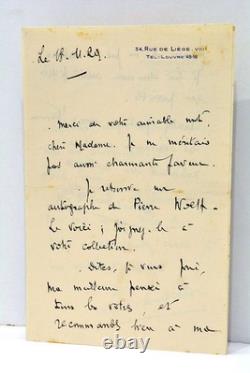 54, RUE DE LIÈGE. VIIIᵉ
TEL: LOUVRE
Le
Merci de votre aimable mot,
chère Madame. Je ne méritais
pas aussi charmante faveur.
Je retrouve un
autographe de Pierre Wolff.
Le voici ; joignez-le à
votre collection.
Dites, je vous prie,
ma meilleure pensée à
tous les vôtres, et
recommandez bien à ma